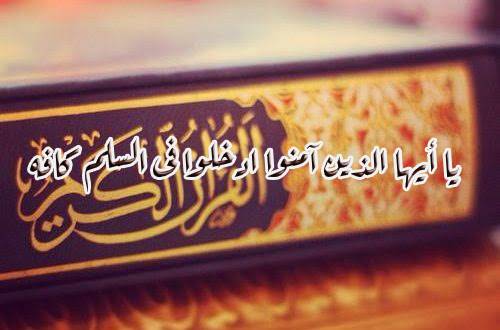 يا أيها الذين آمنوا ادخلوا فى السلم كافه
القرآن الكريم